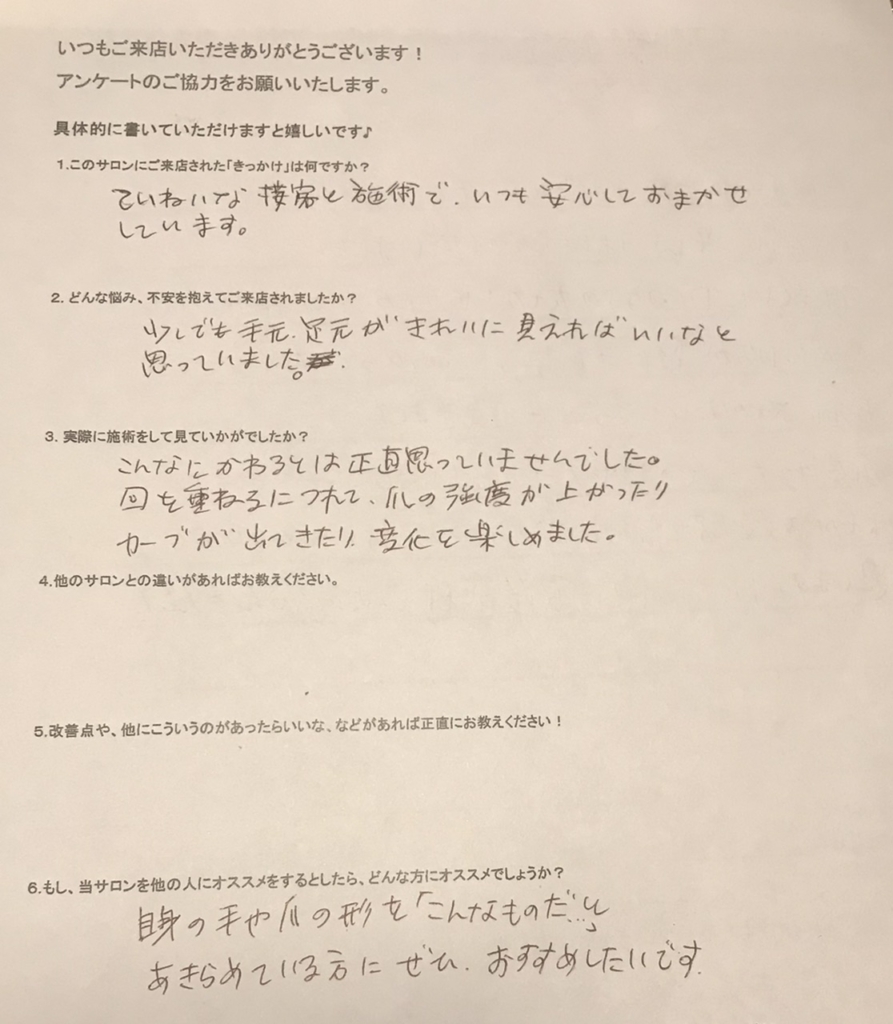 いつもご来店いただきありがとうございます！
アンケートのご協力をお願いいたします。
具体的に書いていただけますと嬉しいです♪
1.このサロンにご来店された「きっかけ」は何ですか？
ていねいな接客と施術で、いつも安心しておまかせ
しています。
2. どんな悩み、不安を抱えてご来店されましたか？
少しでも手元、足元がきれいに見えればいいなと
思っていました。
3. 実際に施術をして見ていかがでしたか？
こんなにかわるとは正直思っていませんでした。
回を重ねるにつれて、爪の強度が上がったり
カーブが出てきたり、変化を楽しめました。
4.他のサロンとの違いがあればお教えください。
5.改善点や、他にこういうのがあったらいいな、などがあれば正直にお教えください！
6.もし、当サロンを他の人にオススメをするとしたら、どんな方にオススメでしょうか？
自身の手や爪の形を「こんなものだ…」と
あきらめている方にぜひ、おすすめしたいです.